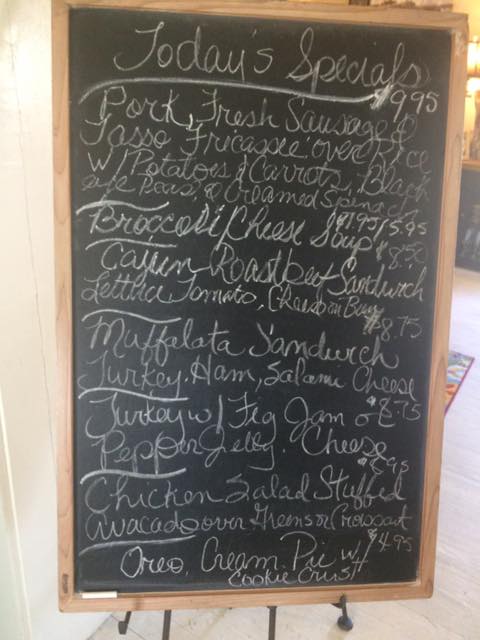 Today's Specials
$9.95
Pork, Fresh Sausage &
Tasso Fricassee over Rice
w/ Potatoes & Carrots, Black
eye Peas, & Creamed Spinach
$4.95/5.95
Broccoli/Cheese Soup
$8.50
Cajun Roastbeef Sandwich
Lettuce Tomato, Cheese on Bun
$8.75
Muffalata Sandwich
Turkey, Ham, Salami Cheese
$8.75
Turkey w/ Fig Jam or
Pepper Jelly. Cheese
$8.95
Chicken Salad Stuffed
Avacado over Greens or Croissant
$4.95
Oreo Cream Pie w/
Cookie Crust